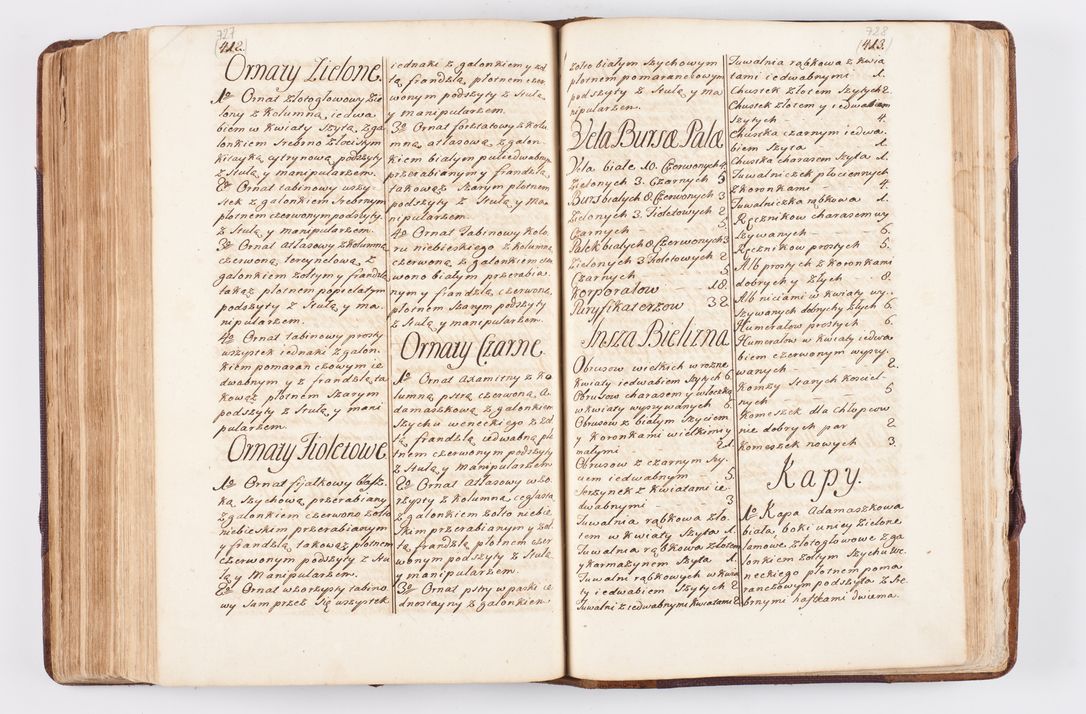 727
412.
Ornaty Zielone.
1º Ornat złotogłowowy Zie-
lony z kolumną, iedwa
biem w kwiaty szytą, z ga
lonkiem srebrno złocistym
kitayką cytrynową podszyty
z stułą y manipularzem.
2º Ornat tabinowy wszy
stek z galonkiem srebrnym
płotnem czerwonym podszyty.
z stułą y manipularzem.
3º Ornat Atłasowy z kolumną
czerwoną, tercynelową z
galonkiem żołtym y frandzlą
takąż płotnem popielatym
podszyty z stułą y ma-
nipularzem.
4º Ornat tabinowy prosty
wszystek iednaki z galon-
kiem pomaranczowym ie
dwabnym y z frandzlą ta
kowąż płotnem szarym
podszyty z stułą y mani
pularzem.
Ornaty Fioletowe
1º Ornat fijałkowy
ką szychową przerabiany
z galonkiem czerwono żołto
niebieskim przerabianym
y frandzlą takowąż płotnem
czerwonym podszyty z stu
łą y Manipularzem.
2º Ornat wzorzysty tabino
wy sam przez się wszystek
iednaki z galonkiem y żoł
tą frandzlą, płotnem czer
wonym podszyty z stułą
y manipularzem.
3º Ornat forsztatowy z kolu
mną atłasową z galon-
kiem białym pułiedwabnym
przerabianym y frandzlą
takowąż szarym płotnem
podszyty z stułą y Ma-
nipularzem.
4º Ornat Tabinowy kolo-
ru niebieskiego z kolumną
czerwoną z galonkiem czer
wono białym przerabia-
nym y frandzlą czerwoną
płotnem szarym podszyty
z stułą y manipularzem.
Ornaty Czarne.
1º Ornat Axamitny z ko
lumną pstrą czerwoną A-
damaszkową z galonkiem
szychu weneckiego z żoł
tą frandzlą iedwabną pło
tnem czerwonym podszyty
z stułą y Manipularzem
2º Ornat Atłasowy wzo-
rzysty z kolumną ceglastą
z galonkiem żołto niebie
skim przerabianym y żoł
tą frandzlą płotnem czer
wonym podszyty z stułą
y manipularzem.
3º Ornat pstry w paski ie
dnostayny z galonkiem
728
413.
żołto białym szychowym
płotnem pomaranczowym
podszyty z stułą y ma
nipularzem.
Vela Bursæ Palæ
Vela białe 10. Czerwonych 4.
Zielonych 3. Czarnych 5
Burs białych 8. Czerwonych 3
Zielonych 3. Fioletowych 2
Czarnych - 5
Palek białych 8. Czerwonych 3
Zielonych 3. Fioletowych 2.
Czarnych - 5
Korporałow - 18.
Puryfikaterzow 32
Insza Bielizna
Obrusow wielkich w rożne
kwiaty iedwabiem szytych 6.
Obrusow charasem y włoczką
w kwiaty wyszywanych 6.
Obrusow z białym szyciem
y koronkami wielkimi y
małymi - 21.
Obrusow z czarnym szy-
ciem iedwabnym 5.
Serzynek z kwiatami ie
dwabnymi 3
Tuwalnia rąbkowa zło-
tem w kwiaty szyta 1.
Tuwalnia rąbkowa złotem
y karmazynem szyta 1.
Tuwalni rąbkowych w kwia
ty iedwabiem szytych 2
Tuwalni z iedwabnymi kwiatami 2.
Tuwalnia rąbkowa z kwia
tami iedwabnymi 1.
Chustek złotem szytych 2.
Chustek złotem y iedwabiem
szytych - 4.
Chustka czarnym iedwa-
biem szyta 1.
Chustka charasem szyta 1.
Tuwalniczek płociennych
z koronkami 4.
Tuwalniczka rąbkowa 1.
Ręcznikow charasem wy
szywanych - 6.
Ręcznikow prostych 5
Alb prostych z koronkami
dobrych y złych - 8.
Alb niciami w kwiaty wy-
szywanych dobrych y złych 6.
Humerałow prostych 6.
Humerałow w kwiaty iedwa
biem czerwonym wyszy-
wanych - 2.
Komży starych kościel-
nych - 5
Komeszek dla chłopcow
nie dobrych par 2
Komeszek nowych 3.
Kapy.
1º Kapa Adamaszkowa
biała, boki u niey Zielone
lamowe złotogłowowe z ga
lonkiem żołtym szychu we-
neckiego płotnem poma
ranczowym podszyta z sre
brnymi haftkami dwiema.